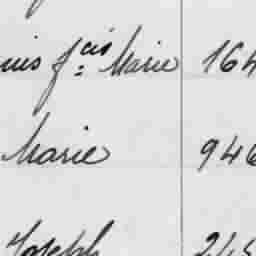 uis f.cis Marie 164
Marie 946
Joseph 245